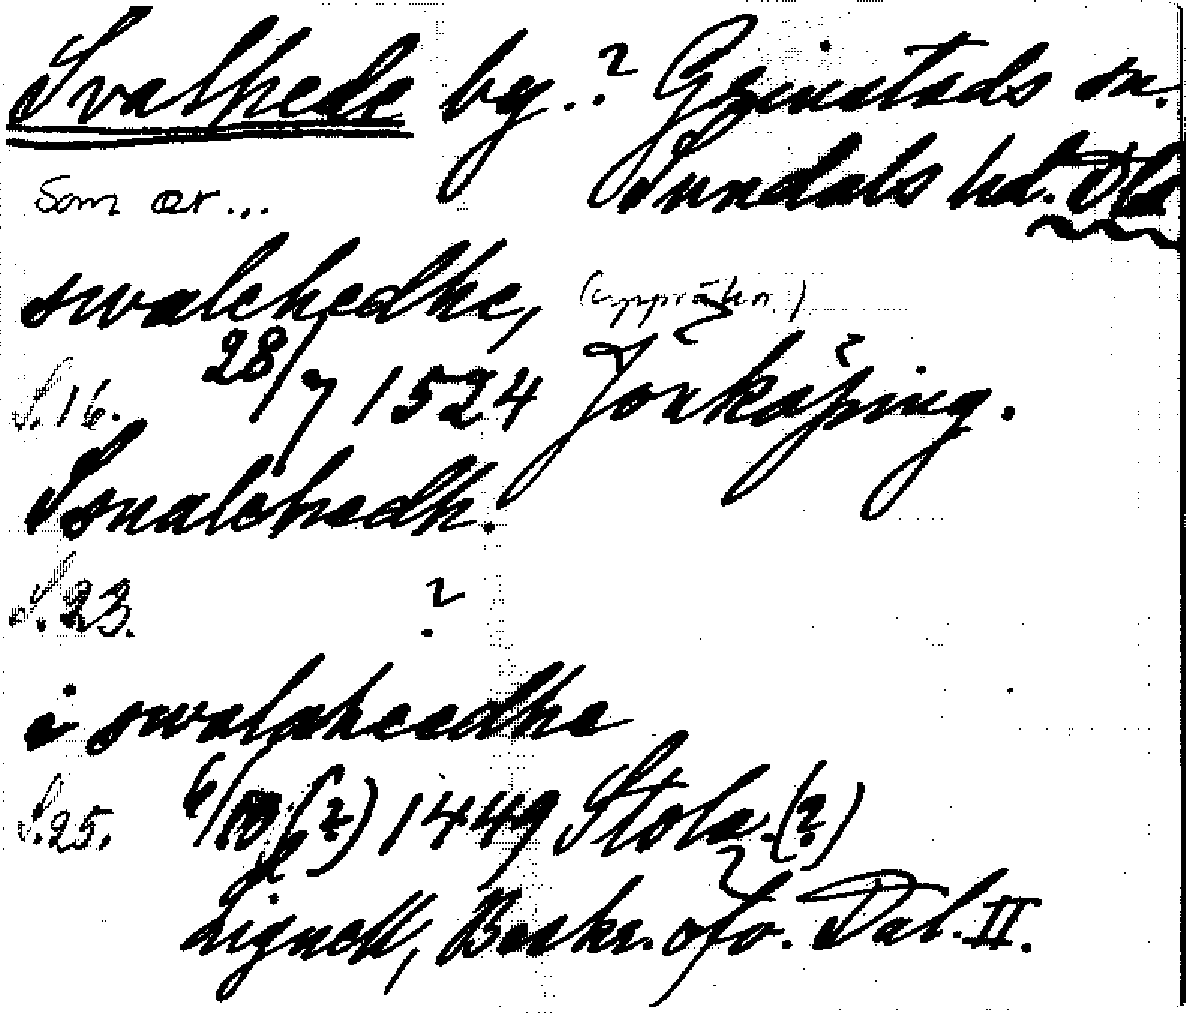 Svalhede by.? Grinstads sn.
Sundals hd. Dld
Som ær...
swalehedhe, (upprätn.)
S.16. 28/7 1524 Jönköping.
Swalehedh.
S.23. ?
i swalaheedhe
S.25. 6/10 (?) 1449 Stola (?)
Lignell, Beskr. öfv. Dal. II.